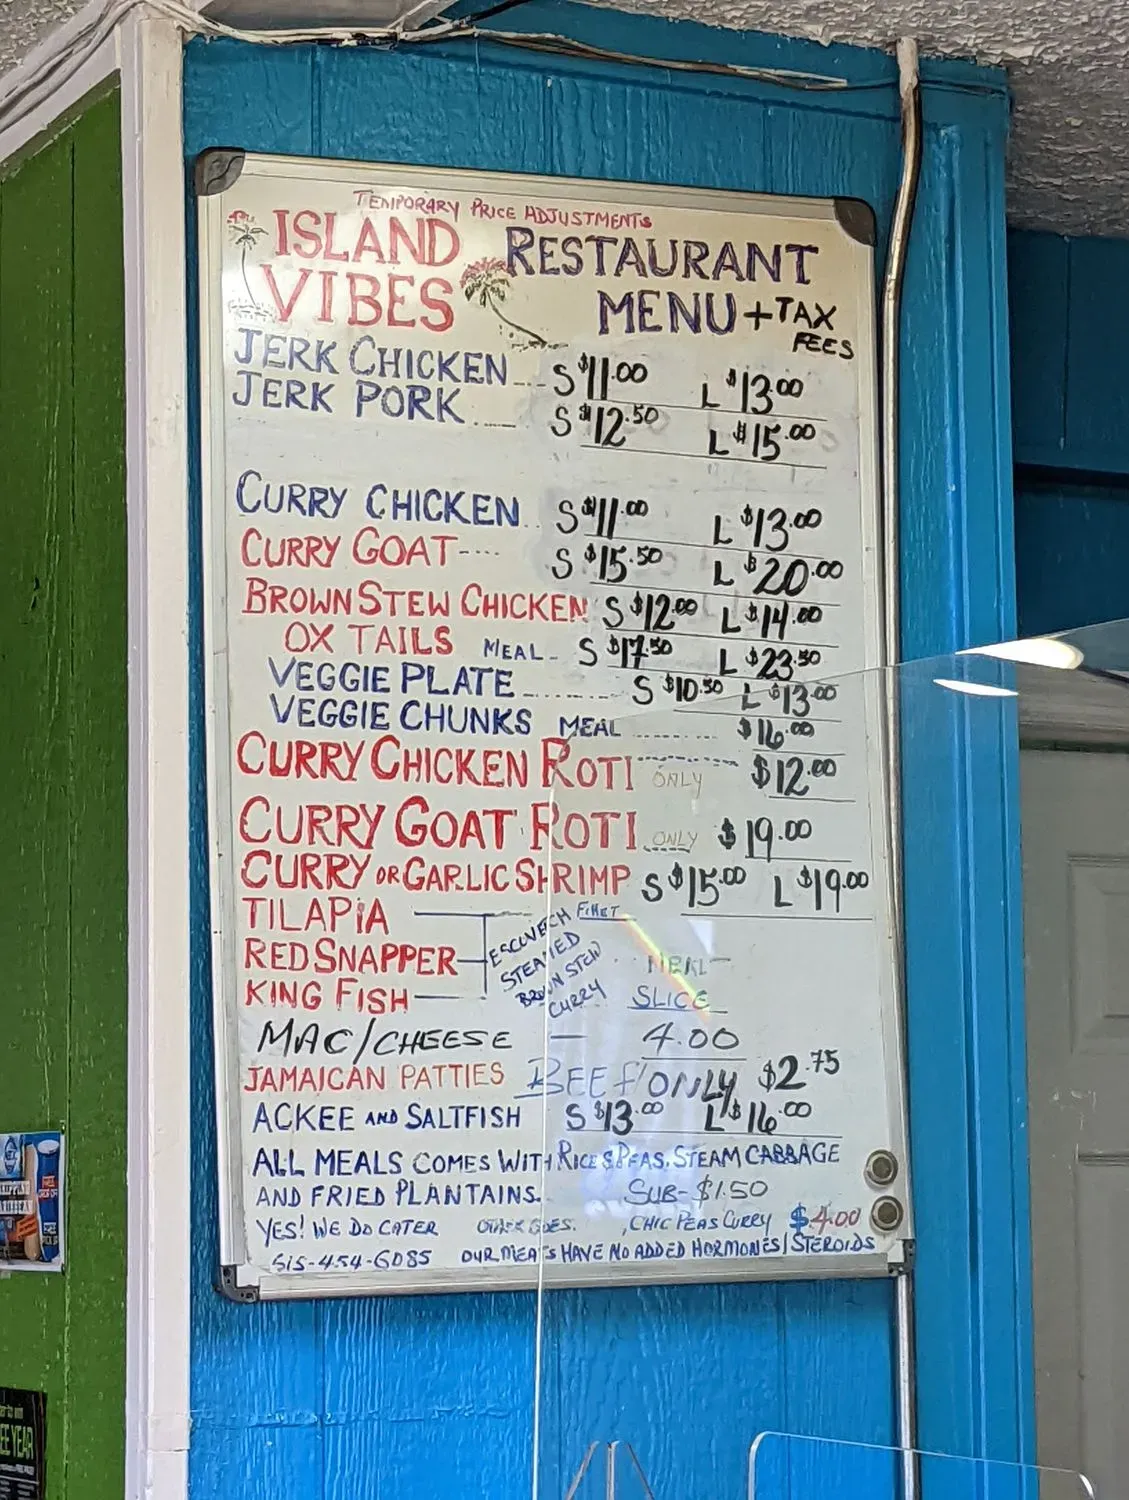 TEMPORARY PRICE ADJUSTMENTS
ISLAND VIBES
RESTAURANT MENU + TAX FEES
JERK CHICKEN S $11.00 L $13.00
JERK PORK S $12.50 L $15.00
CURRY CHICKEN S $11.00 L $13.00
CURRY GOAT S $15.50 L $20.00
BROWN STEW CHICKEN S $12.00 L $14.00
OX TAILS MEAL S $17.50 L $23.50
VEGGIE PLATE S $10.50 L $13.00
VEGGIE CHUNKS MEAL $16.00
CURRY CHICKEN ROTI ONLY $12.00
CURRY GOAT ROTI ONLY $19.00
CURRY OR GARLIC SHRIMP S $15.00 L $19.00
TILAPIA FILLET
RED SNAPPER MEAL
KING FISH SLICE
ESCOVECH
STEAMED
BROWN STEW
CURRY
MAC/CHEESE — 4.00
JAMAICAN PATTIES BEEF ONLY $2.75
ACKEE AND SALTFISH S $13.00 L $16.00
ALL MEALS COMES WITH RICE & PEAS, STEAM CABBAGE
AND FRIED PLANTAINS. SUB-$1.50
YES! WE DO CATER OTHER SIDES. CHIC PEAS CURRY $4.00
515-454-6085 OUR MEATS HAVE NO ADDED HORMONES/STEROIDS